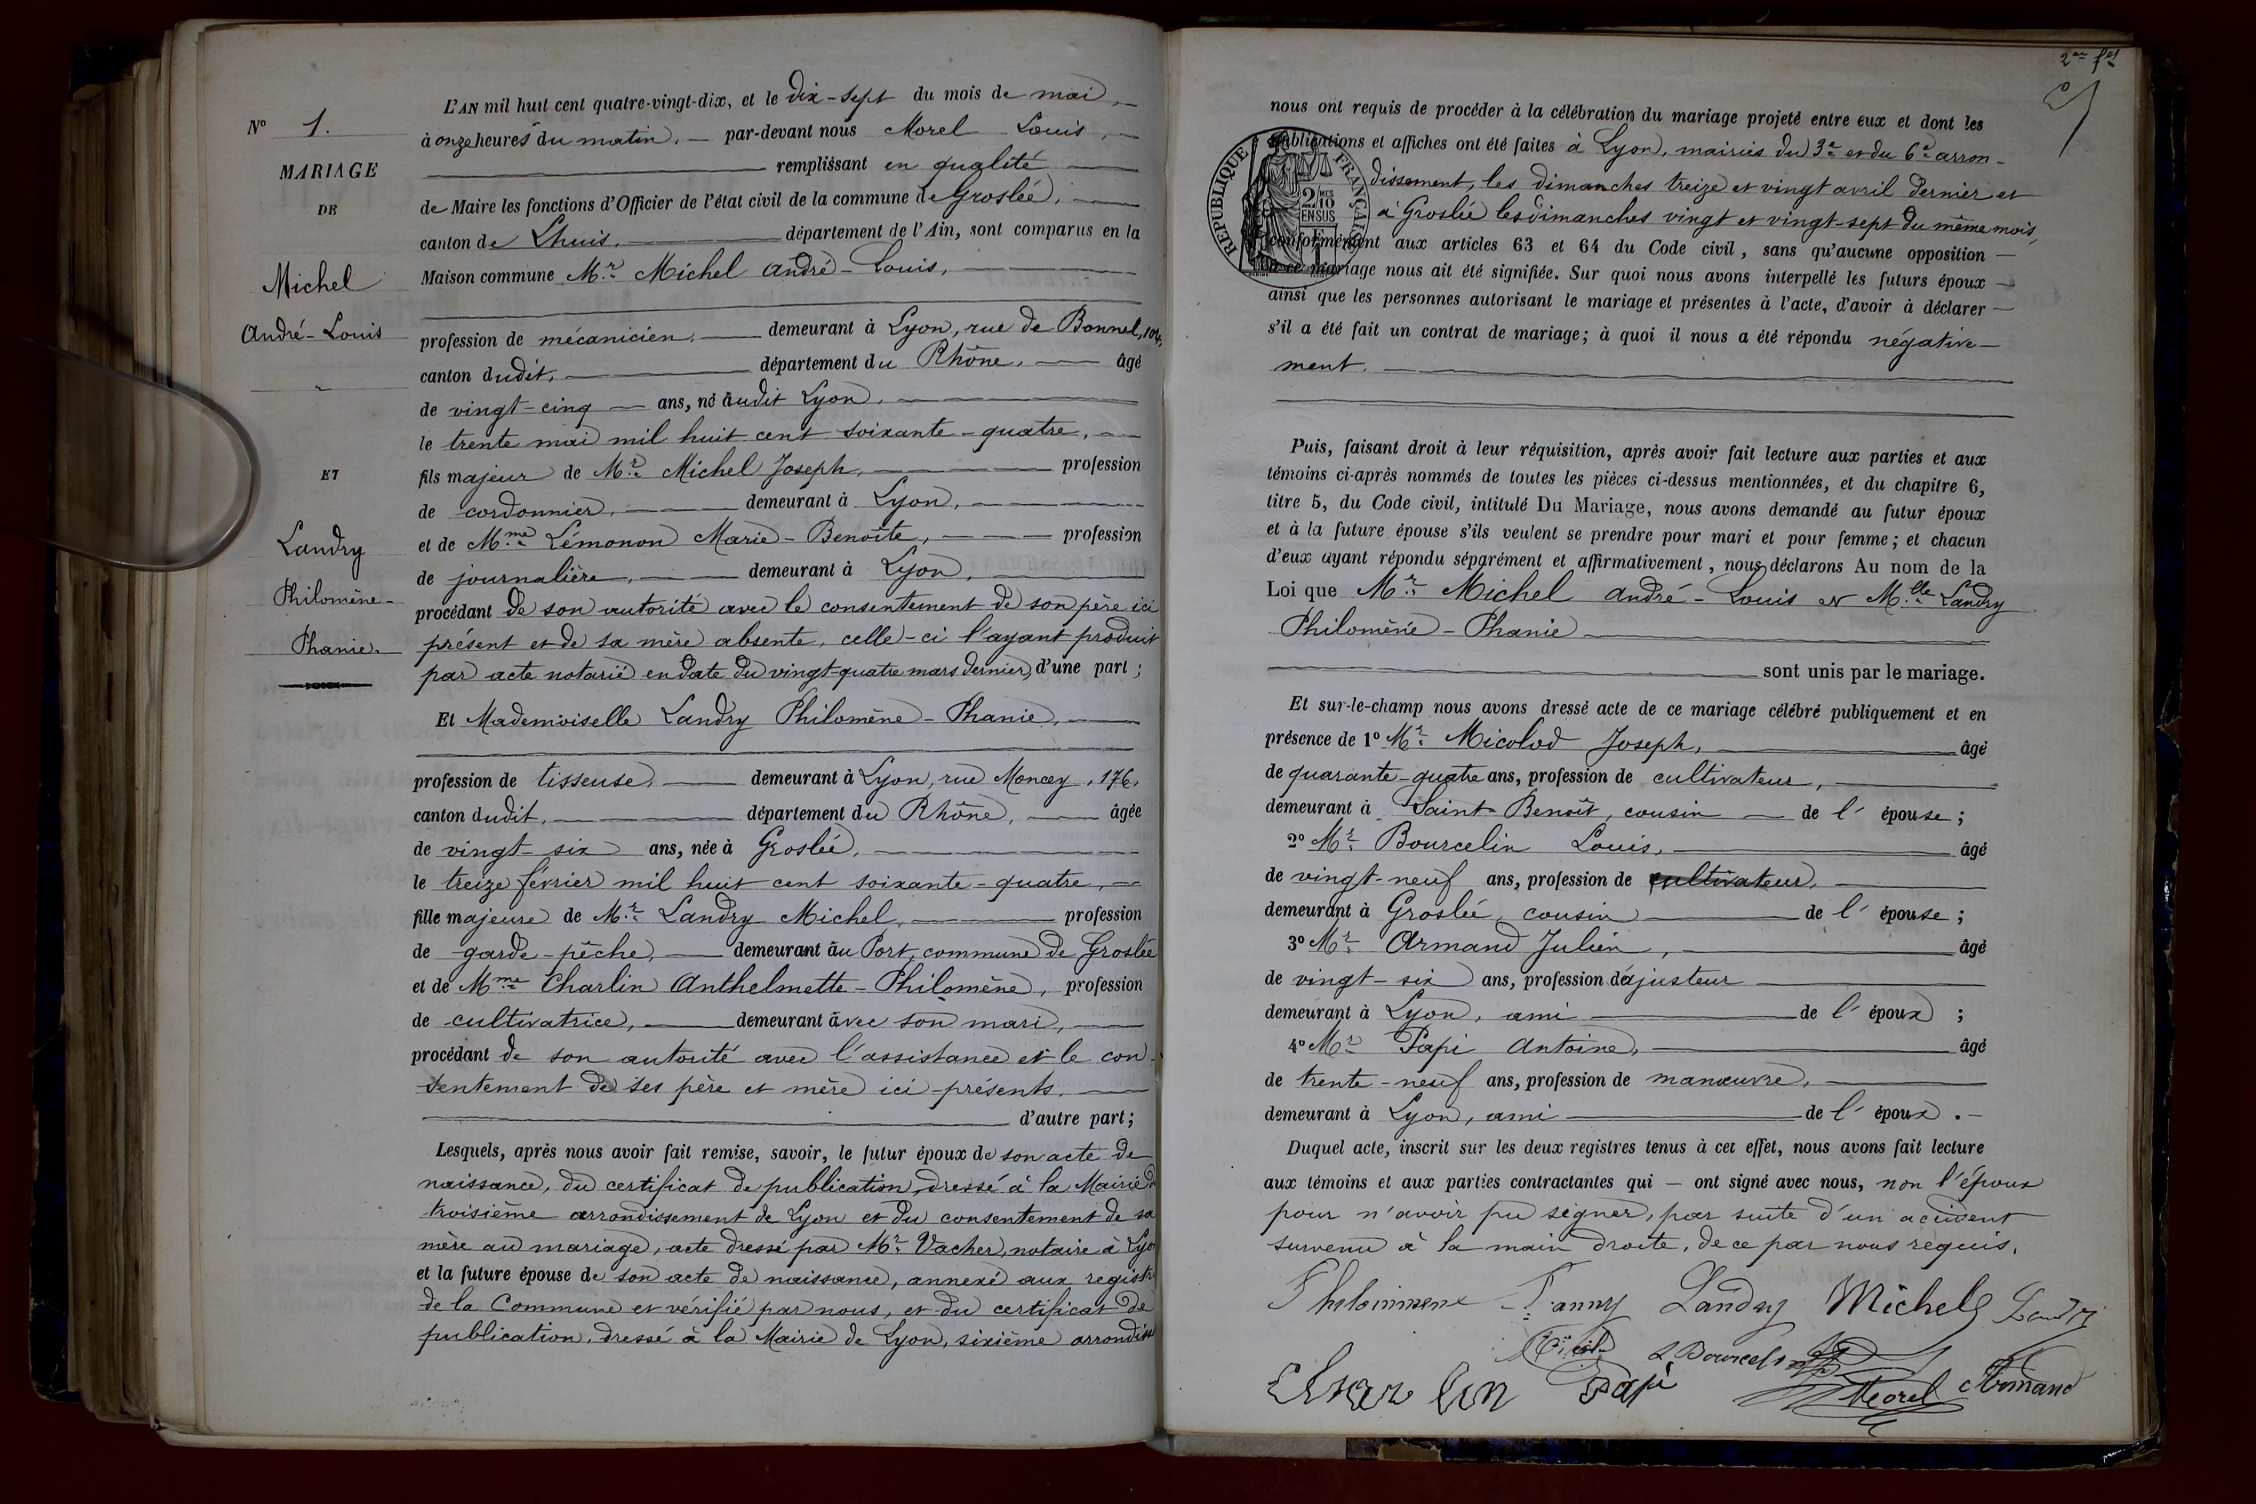 L'AN mil huit cent quatre-vingt-dix, et le dix-sept du mois de mai,
N° 1.
à onze heures du matin, par-devant nous Morel Louis,
MARIAGE
remplissant en qualité
DE
de Maire les fonctions d'Officier de l'état civil de la commune de Groslée,
canton de Lhuis, département de l'Ain, sont comparus en la
Maison commune Mr Michel André-Louis,
Michel
André-Louis
profession de mécanicien, demeurant à Lyon, rue de Bonnel, 104,
canton dudit, département du Rhône, âgé
de vingt-cinq ans, né audit Lyon,
le trente mai mil huit cent soixante-quatre,
ET
fils majeur de Mr Michel Joseph, profession
de cordonnier, demeurant à Lyon,
Landry
et de Mme Lémonon Marie-Benoîte, profession
de journalière, demeurant à Lyon,
Philomène-
procédant de son autorité avec le consentement de son père ici
Phanie.
présent et de sa mère absente, celle-ci l'ayant produit
par acte notarié en date du vingt-quatre mars dernier, d'une part ;
Et Mademoiselle Landry Philomène-Phanie,
profession de tisseuse, demeurant à Lyon, rue Moncey, 176,
canton dudit, département du Rhône, âgée
de vingt-six ans, née à Groslée,
le treize février mil huit cent soixante-quatre,
fille majeure de Mr Landry Michel, profession
de garde-pêche, demeurant au Port, commune de Groslée
et de Mme Charlin Anthelmette-Philomène, profession
de cultivatrice, demeurant avec son mari,
procédant de son autorité avec l'assistance et le con-
sentement de ses père et mère ici présents,
d'autre part ;
Lesquels, après nous avoir fait remise, savoir, le futur époux de son acte de
naissance, du certificat de publication dressé à la Mairie
troisième arrondissement de Lyon et du consentement de sa
mère au mariage, acte dressé par Mr Vacher, notaire à Lyo
et la future épouse de son acte de naissance, annexé aux regist
de la Commune et vérifié par nous, et du certificat de
publication, dressé à la Mairie de Lyon, sixième arrondiss
nous ont requis de procéder à la célébration du mariage projeté entre eux et dont les
publications et affiches ont été faites à Lyon, mairies du 3e et du 6e arron-
dissement, les dimanches treize et vingt avril dernier et
à Groslée les dimanches vingt et vingt-sept du même mois,
conformément aux articles 63 et 64 du Code civil, sans qu'aucune opposition
à ce mariage nous ait été signifiée. Sur quoi nous avons interpellé les futurs époux
ainsi que les personnes autorisant le mariage et présentes à l'acte, d'avoir à déclarer
s'il a été fait un contrat de mariage ; à quoi il nous a été répondu négative-
ment.
RÉPUBLIQUE FRANÇAISE
2/10
EN SUS
Puis, faisant droit à leur réquisition, après avoir fait lecture aux parties et aux
témoins ci-après nommés de toutes les pièces ci-dessus mentionnées, et du chapitre 6,
titre 5, du Code civil, intitulé Du Mariage, nous avons demandé au futur époux
et à la future épouse s'ils veulent se prendre pour mari et pour femme ; et chacun
d'eux ayant répondu séparément et affirmativement, nous déclarons Au nom de la
Loi que Mr Michel André-Louis et Mlle Landry
Philomène-Phanie
sont unis par le mariage.
Et sur-le-champ nous avons dressé acte de ce mariage célébré publiquement et en
présence de 1° Mr Micolod Joseph, âgé
de quarante-quatre ans, profession de cultivateur,
demeurant à Saint-Benoît, cousin de l'épouse ;
2° Mr Bourcelin Louis, âgé
de vingt-neuf ans, profession de cultivateur,
demeurant à Groslée, cousin de l'épouse ;
3° Mr Armand Julien, âgé
de vingt-six ans, profession d'ajusteur
demeurant à Lyon, ami de l'époux ;
4° Mr Papi Antoine, âgé
de trente-neuf ans, profession de manœuvre,
demeurant à Lyon, ami de l'époux.
Duquel acte, inscrit sur les deux registres tenus à cet effet, nous avons fait lecture
aux témoins et aux parties contractantes qui — ont signé avec nous, non l'époux
pour n'avoir pu signer, par suite d'un accident
survenu à la main droite, de ce par nous requis.
Fanny Landry Michel Landry
L Bourcelin
Charlin Papi Morel Armand